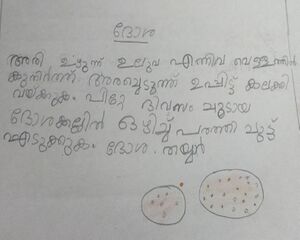 ദോശ
അരി ഉഴുന്ന് ഉലുവ എന്നിവ വെള്ളത്തിൽ
കുതിർത്ത് അരച്ചെടുത്ത് ഉപ്പിട്ട് കലക്കി
വയ്ക്കുക. പിറ്റേ ദിവസം ചൂടായ
ദോശക്കല്ലിൽ ഒഴിച്ച് പരത്തി ചുട്ട്
എടുക്കുക. ദോശ തയ്യാർ